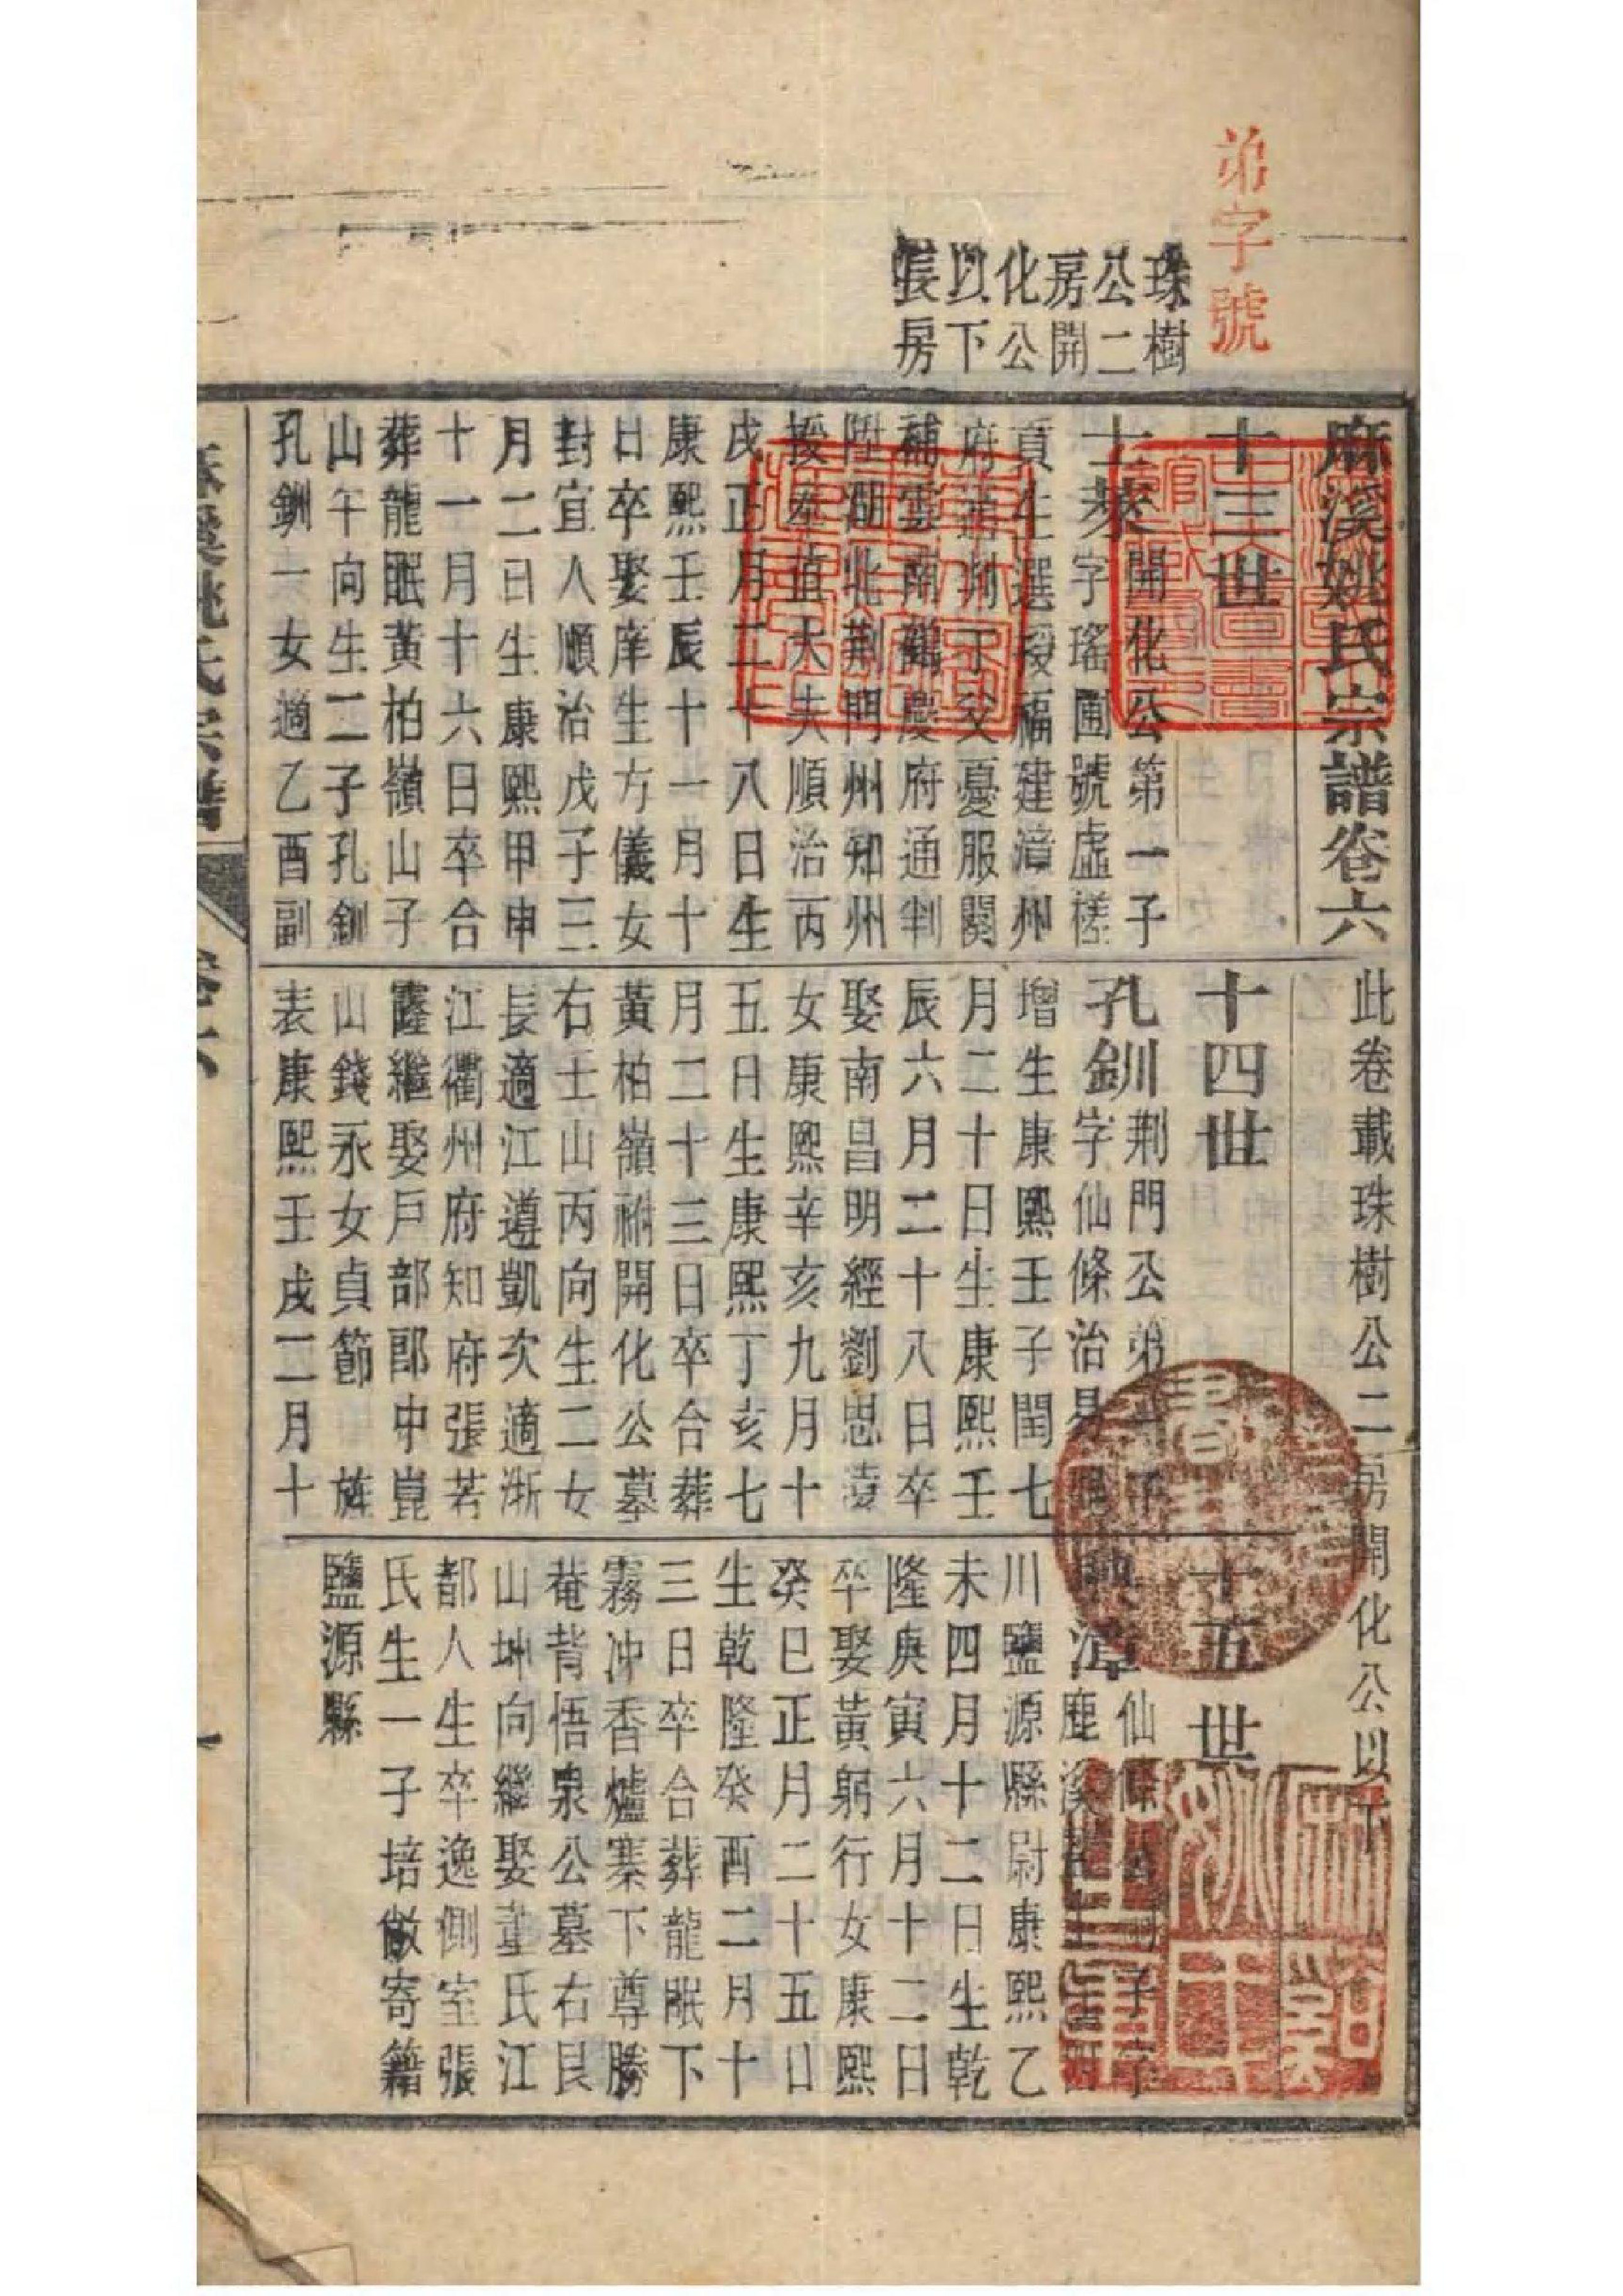 弟字號
珠樹
公二
房開
化公
以下
長房
麻溪姚氏宗譜卷六
此卷載珠樹公二房開化公以下
十三世
士萊
開化公第一子
字瑤圃號虛槎
貢生選授福建漳州
府通判丁父憂服闋
補雲南鶴慶府通判
陞湖北荊門州知州
授奉直大夫順治丙
戌正月二十八日生
康熙壬辰十一月十
日卒娶庠生方儀女
封宜人順治戊子三
月二日生康熙甲申
十一月十六日卒合
葬龍眠黃柏嶺山子
山午向生二子孔釧
孔釧一女適乙酉副
十四世
孔釧
荊門公弟 子
字仙條治易
增生康熙壬子閏七
月二十日生康熙壬
辰六月二十八日卒
娶南昌明經劉思淩
女康熙辛亥九月十
五日生康熙丁亥七
月二十三日卒合葬
黃柏嶺祔開化公墓
右壬山丙向生二女
長適江遵凱次適浙
江衢州府知府張若
霳繼娶戶部郎中崑
山錢永女貞節 旌
表康熙壬戌二月十
十五世
漳
仙條公 子字
麈溪
川鹽源縣尉康熙乙
未四月十二日生乾
隆庚寅六月十二日
卒娶黃躬行女康熙
癸巳正月二十五日
生乾隆癸酉二月十
三日卒合葬龍眠下
霧冲香爐寨下尊勝
菴背悟泉公墓右艮
山坤向繼娶董氏江
都人生卒逸側室張
氏生一子培敝寄籍
鹽源縣